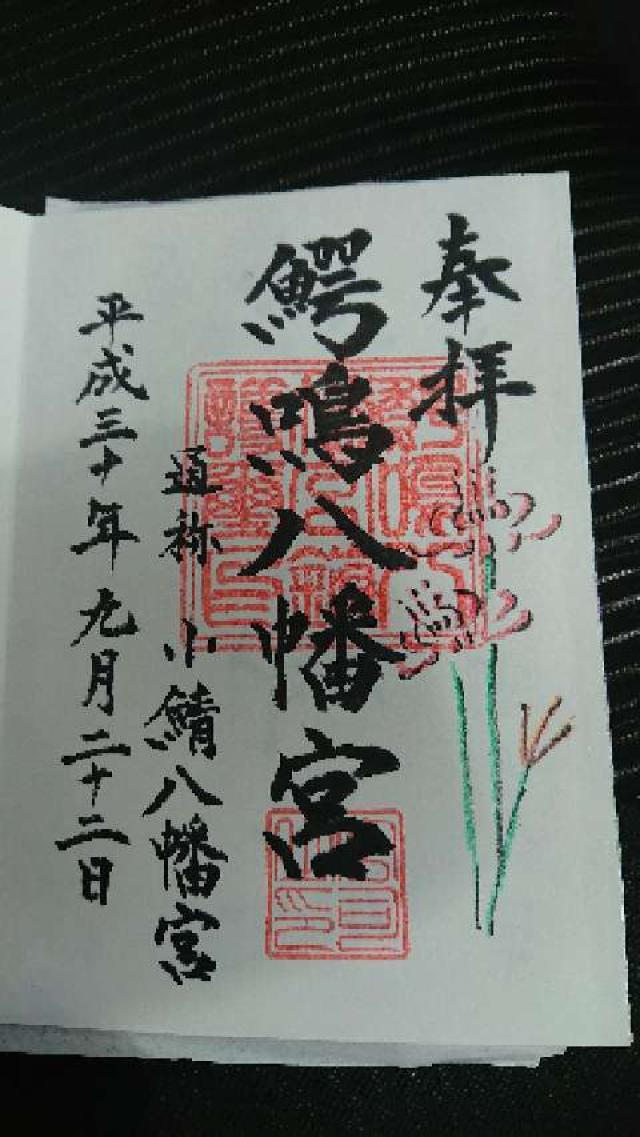 奉拝
鰐鳴八幡宮
通称 小鯖八幡宮
平成三十年九月二十二日